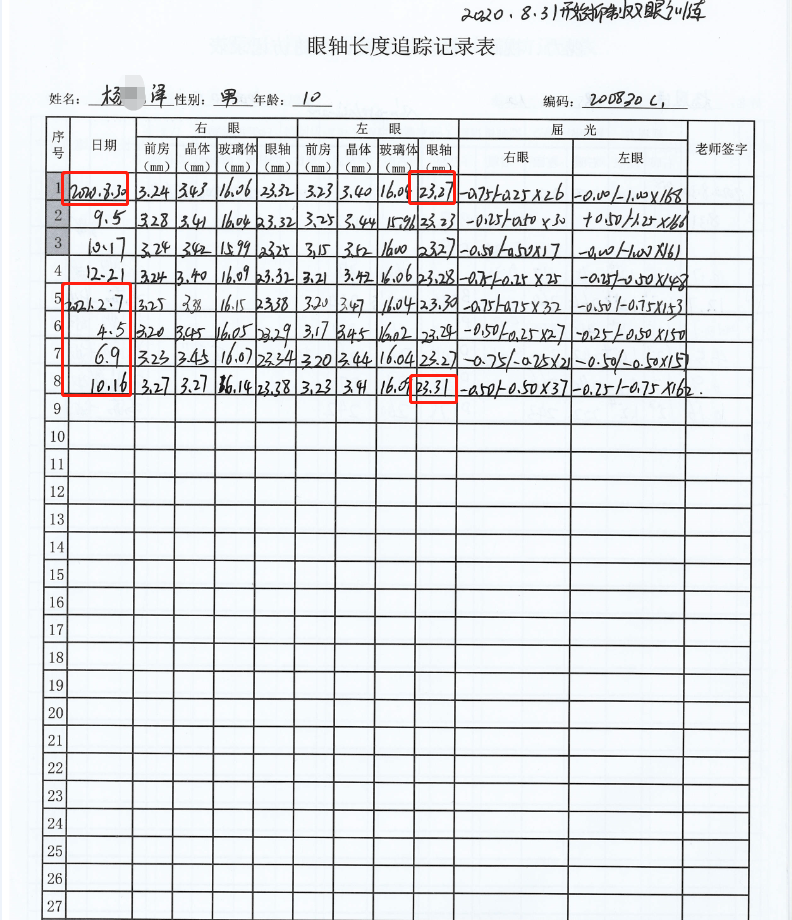 2020.8.31开始抑制双眼训练
眼轴长度追踪记录表
姓名: 杨 泽 性别: 男 年龄: 10 编码: 200830 C,
序号 日期 右 眼 左 眼 屈 光 老师签字
前房(mm) 晶体(mm) 玻璃体(mm) 眼轴(mm) 前房(mm) 晶体(mm) 玻璃体(mm) 眼轴(mm) 右眼 左眼
1 2020.8.30 3.24 3.43 16.06 23.32 3.23 3.40 16.04 23.27 -0.75/-0.25×26 -0.00/-1.00×168
2 9.5 3.28 3.41 16.04 23.32 3.25 3.44 15.96 23.23 -0.25/-0.50×30 +0.50/-1.25×166
3 10.17 3.24 3.42 15.99 23.25 3.15 3.52 16.00 23.27 -0.50/-0.50×17 -0.00/-1.00×161
4 12.21 3.24 3.40 16.09 23.32 3.21 3.42 16.06 23.28 -0.75/-0.25×25 -0.25/-0.50×148
5 2021.2.7 3.25 3.38 16.15 23.38 3.20 3.47 16.04 23.30 -0.75/-0.75×32 -0.50/-0.75×153
6 4.5 3.20 3.45 16.05 23.29 3.17 3.45 16.02 23.24 -0.50/-0.25×27 -0.25/-0.50×150
7 6.9 3.23 3.45 16.07 23.34 3.20 3.44 16.04 23.27 -0.75/-0.25×21 -0.50/-0.50×151
8 10.16 3.27 3.27 16.14 23.38 3.23 3.41 16.09 23.31 -0.50/-0.50×37 -0.25/-0.75×162.
9
10
11
12
13
14
15
16
17
18
19
20
21
22
23
24
25
26
27